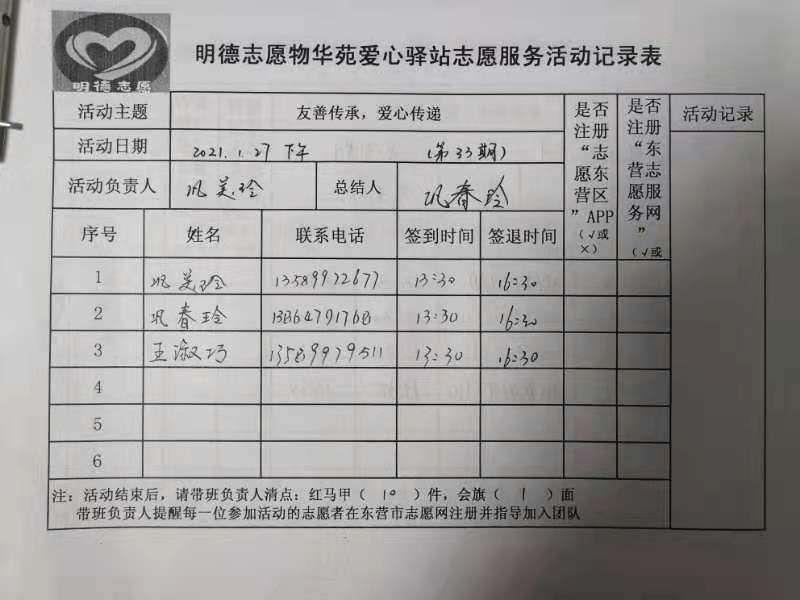 明德志愿
明德志愿物华苑爱心驿站志愿服务活动记录表
活动主题 友善传承，爱心传递 是否注册“志愿东营区”APP（√或×） 是否注册“东营志愿服务网”（√或 活动记录
活动日期 2021.1.27 下午 （第33期）
活动负责人 巩美玲 总结人 巩春玲
序号 姓名 联系电话 签到时间 签退时间
1 巩美玲 13589972677 13:30 16:30
2 巩春玲 13:30 16:30
3 王淑巧 13589979511 13:30 16:30
4
5
6
注：活动结束后，请带班负责人清点：红马甲（ 10 ）件，会旗（ 1 ）面
带班负责人提醒每一位参加活动的志愿者在东营市志愿网注册并指导加入团队